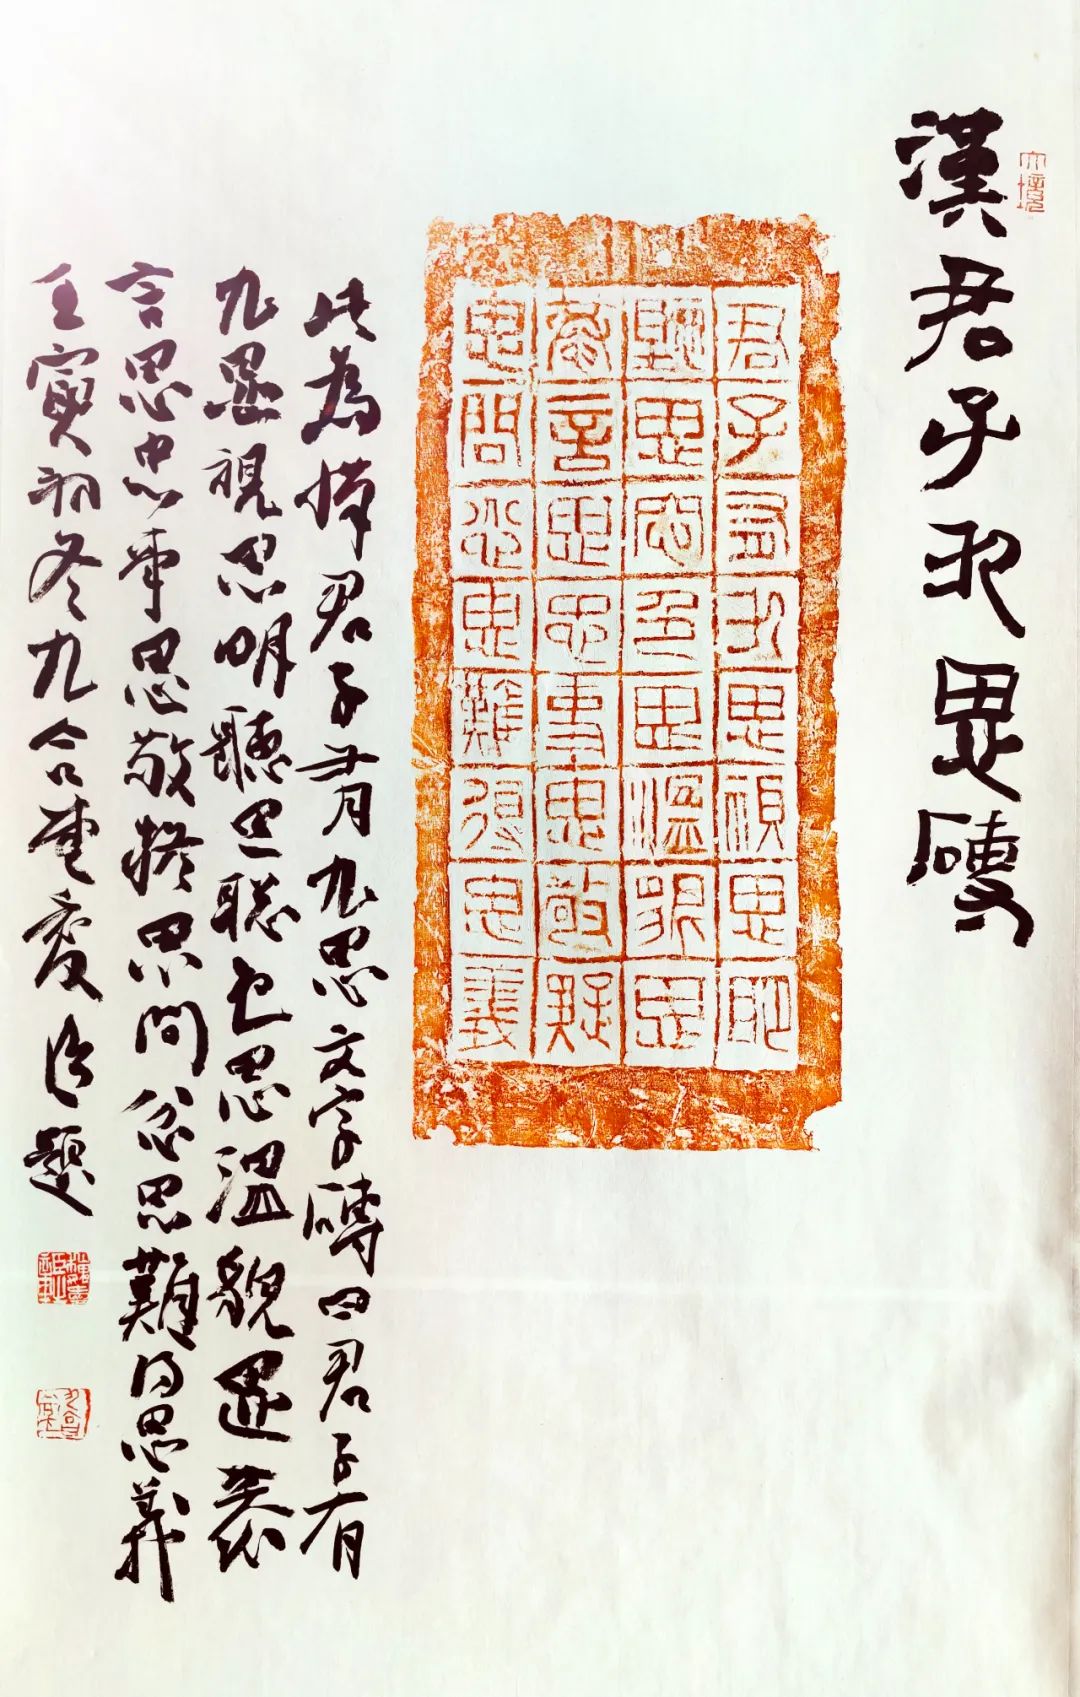 漢君子九思磚
君子有九思視思明
聽思聰色思溫貌思
恭言思忠事思敬疑
思問忿思難得思義
此為漢君子有九思文字磚曰君子有
九思視思明聽思聰色思溫貌思恭
言思忠事思敬疑思問忿思難得思義
壬寅初冬九合堂慶題